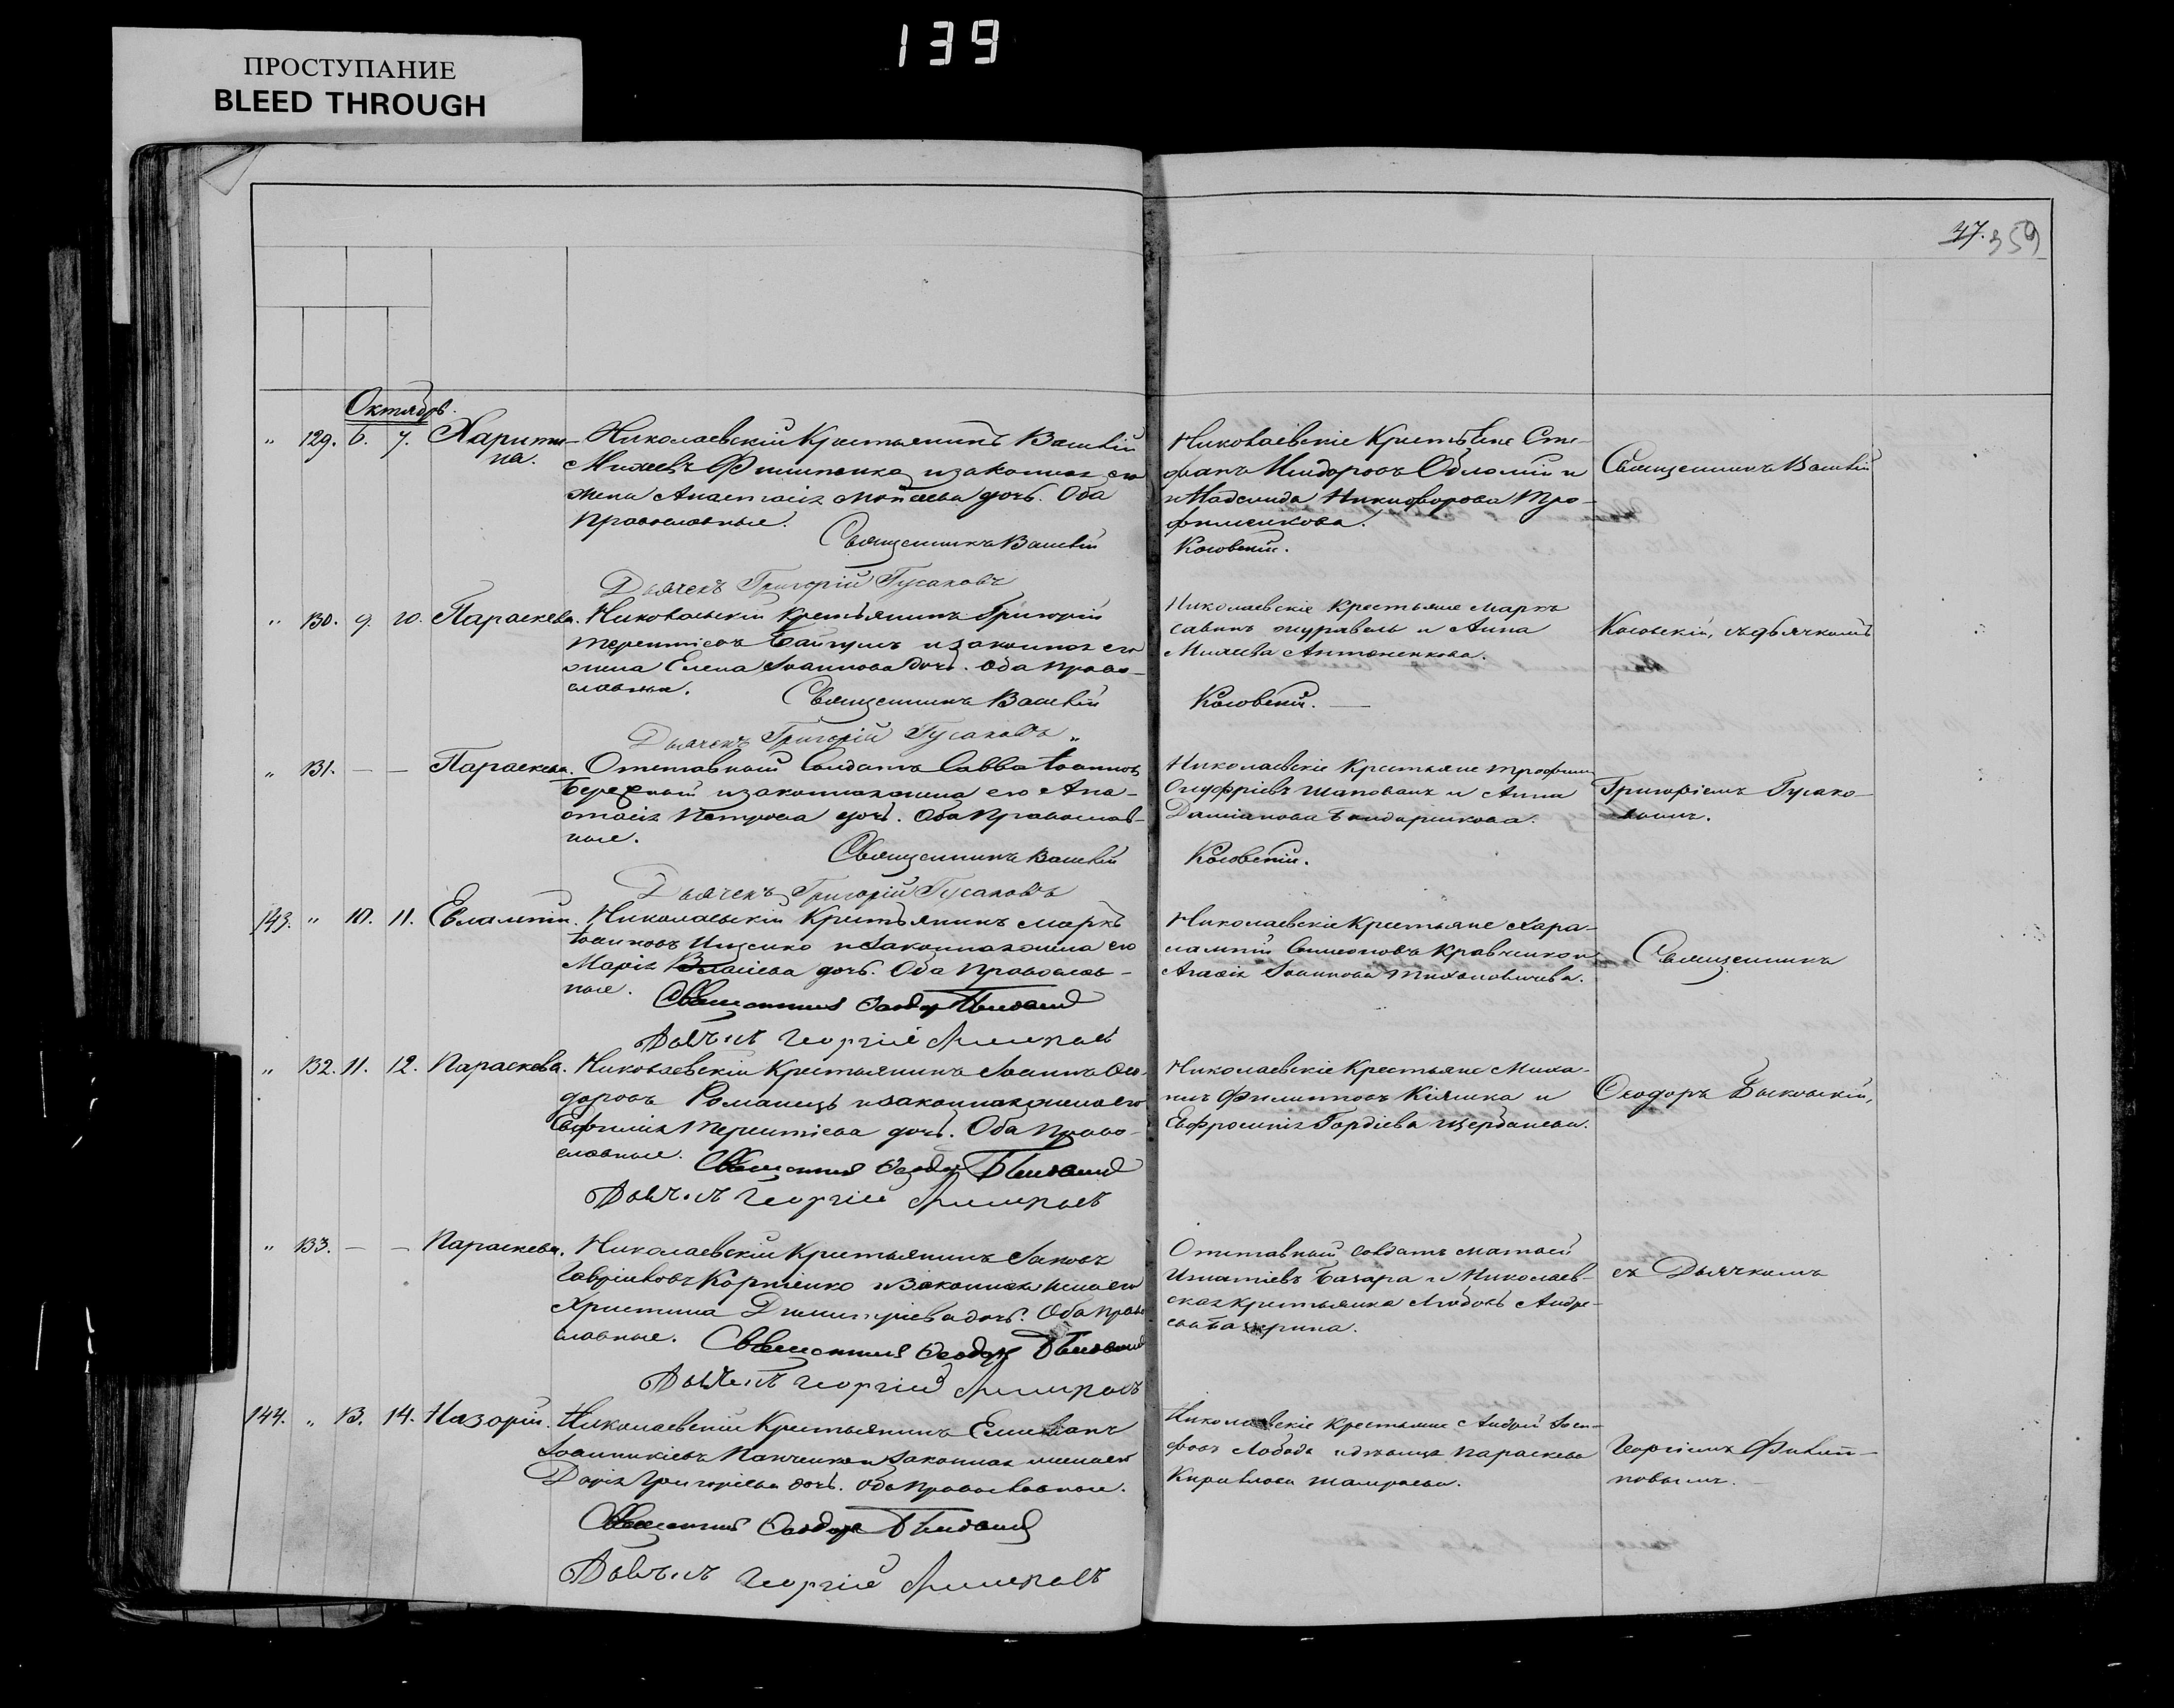 139
ПРОСТУПАНИЕ
BLEED THROUGH
37. 359
Октябрь.
" 129. 6. 7. Харити-
на.
Николаевскій Крестьянинъ Василій
Михеевъ Филипенко и законная его
жена Анастасія Моисеева дочь. Оба
православные.
Священникъ Василій
Дьячекъ Григорій Гусаковъ
Николаевскіе Крестьяне Сте-
фанъ Исидоровъ и
Никифорова Тро-
фименкова.
Косовскій.
Священникъ Василій
" 130. 9. 10. Параскева.
Николаевскій Крестьянинъ Григорій
Терентіевъ и законная его
жена Елена Іоаннова дочь. Оба право-
славные.
Священникъ Василій
Дьячекъ Григорій Гусаковъ "
Николаевскіе Крестьяне Маркъ
Савинъ Журавель и Анна
Михеева Антоненкова.
Косовскій.
Косовскій, съ дьячкомъ
" 131. — — Параскева.
Отставный Солдатъ Савва Іоанновъ
Бережный и законная жена его Ана-
стасія Петрова дочь. Оба Православ-
ные.
Священникъ Василій
Дьячекъ Григорій Гусаковъ
Николаевскіе Крестьяне Трофимъ
Онуфріевъ Шаповалъ и Анна
Даміанова Бондаренкова.
Косовскій.
Григоріемъ Гусако-
вымъ.
143. " 10. 11. Евлампій.
Николаевскій Крестьянинъ Маркъ
Іоанновъ Ищенко и законная жена его
Марія Власіева дочь. Оба Православ-
ные.
Священникъ Ѳеодоръ
Дьячекъ Георгій
Николаевскіе Крестьяне Хара-
лампій Симеоновъ Кравченко и
Агафія Іоаннова
Священникъ
" 132. 11. 12. Параскева.
Николаевскій Крестьянинъ Іоаннъ Ѳео-
доровъ Романецъ и законная жена его
Евфимія Терентіева дочь. Оба Право-
славные.
Священникъ Ѳеодоръ
Дьячекъ Георгій
Николаевскіе Крестьяне Миха-
илъ Филипповъ Кіяшка и
Евфросинія Гордіева Щербанева.
Ѳеодоръ
" 133. — — Параскева.
Николаевскій Крестьянинъ Іаковъ
Гавріиловъ Корніенко и Законная жена его
Христина Димитріева дочь. Оба Право
славные.
Священникъ Ѳеодоръ
Дьячекъ Георгій
Отставный Солдатъ Матѳей
Игнатіевъ Базара и Николаев-
ская крестьянка Любовь Андре-
ева
съ Дьячкомъ
144. " 13. 14. Назорій.
Николаевскій Крестьянинъ Емиліанъ
Іоанникіевъ Панченко и законная жена его
Дарія Григоріева дочь. Оба Православные.
Священникъ Ѳеодоръ
Дьячекъ Георгій
Николаевскіе Крестьяне Андрей Іоси-
фовъ Лобода и Параскева
Кириллова
Георгіемъ Филип-
повымъ.